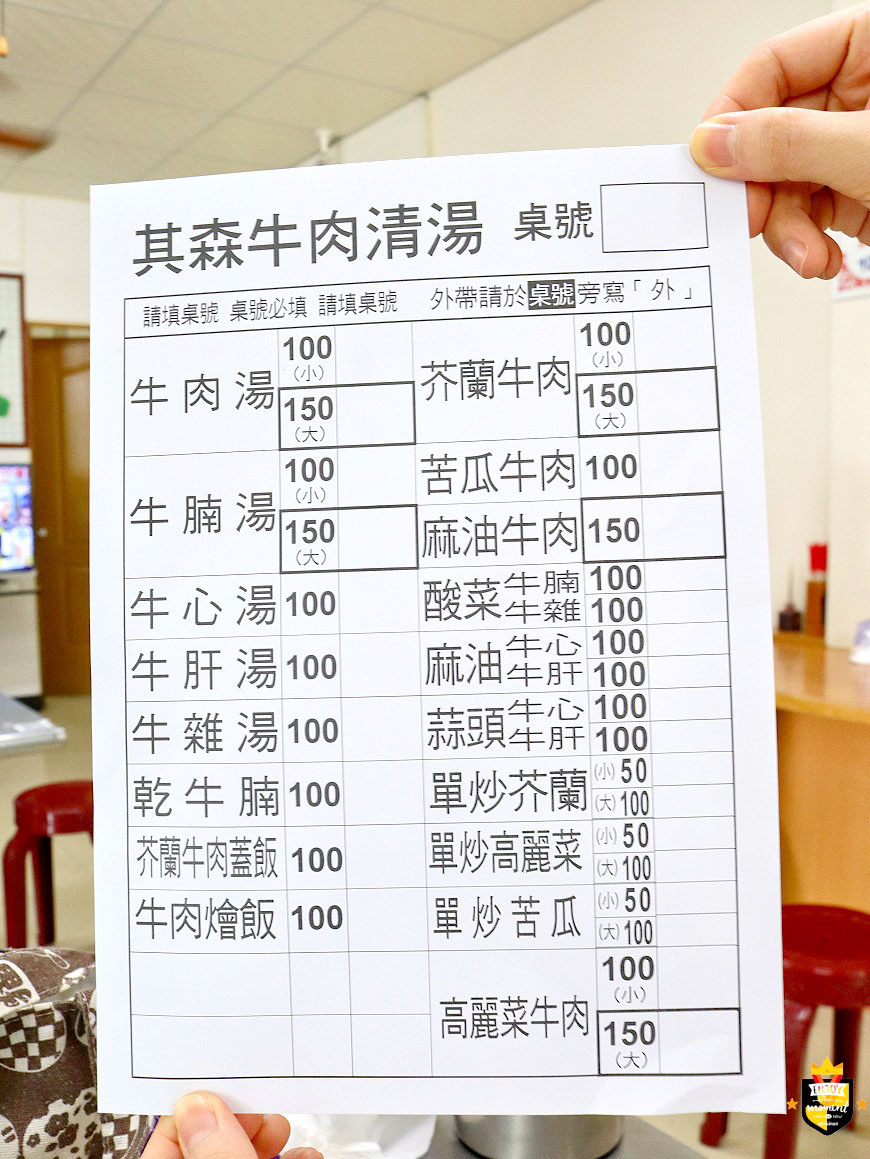 其森牛肉清湯 桌號
請填桌號 桌號必填 請填桌號 外帶請於桌號旁寫「外」
牛肉湯 100 (小)
150 (大)
牛腩湯 100 (小)
150 (大)
牛心湯 100
牛肝湯 100
牛雜湯 100
乾牛腩 100
芥蘭牛肉蓋飯 100
牛肉燴飯 100
芥蘭牛肉 100 (小)
150 (大)
苦瓜牛肉 100
麻油牛肉 150
酸菜 牛腩 100
牛雜 100
麻油 牛心 100
牛肝 100
蒜頭 牛心 100
牛肝 100
單炒芥蘭 (小) 50
(大) 100
單炒高麗菜 (小) 50
(大) 100
單炒苦瓜 (小) 50
(大) 100
高麗菜牛肉 100 (小)
150 (大)
ENJOY
moment